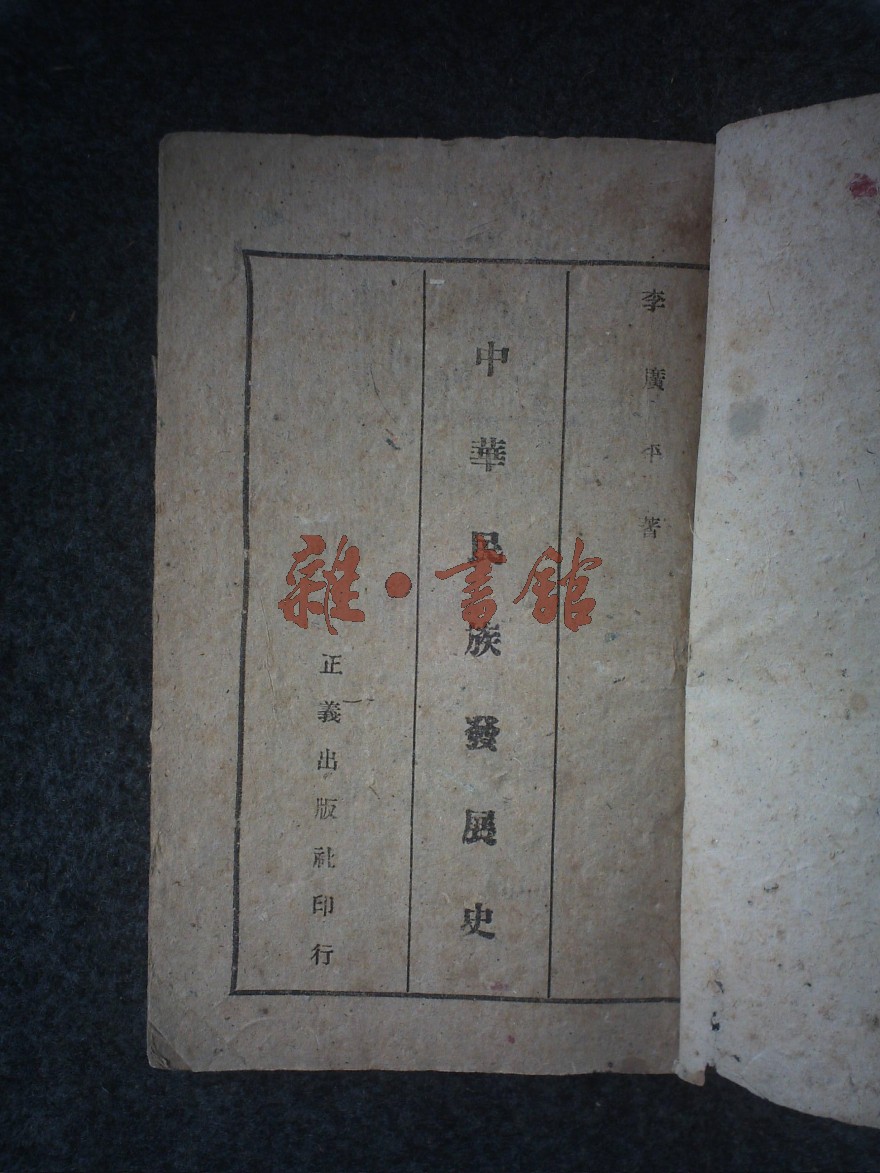 李廣平著
中華民族發展史
正義出版社印行
雜·書館